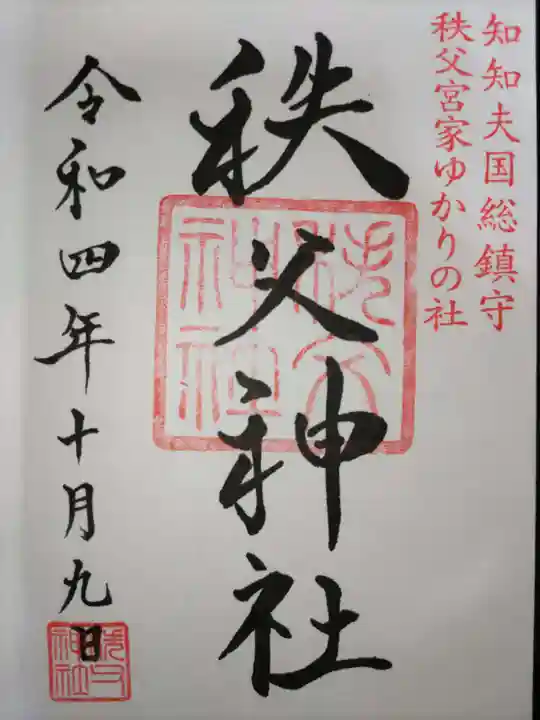 知知夫国総鎮守
秩父宮家ゆかりの社
秩父神社
秩父神社
令和四年十月九日
秩父神社